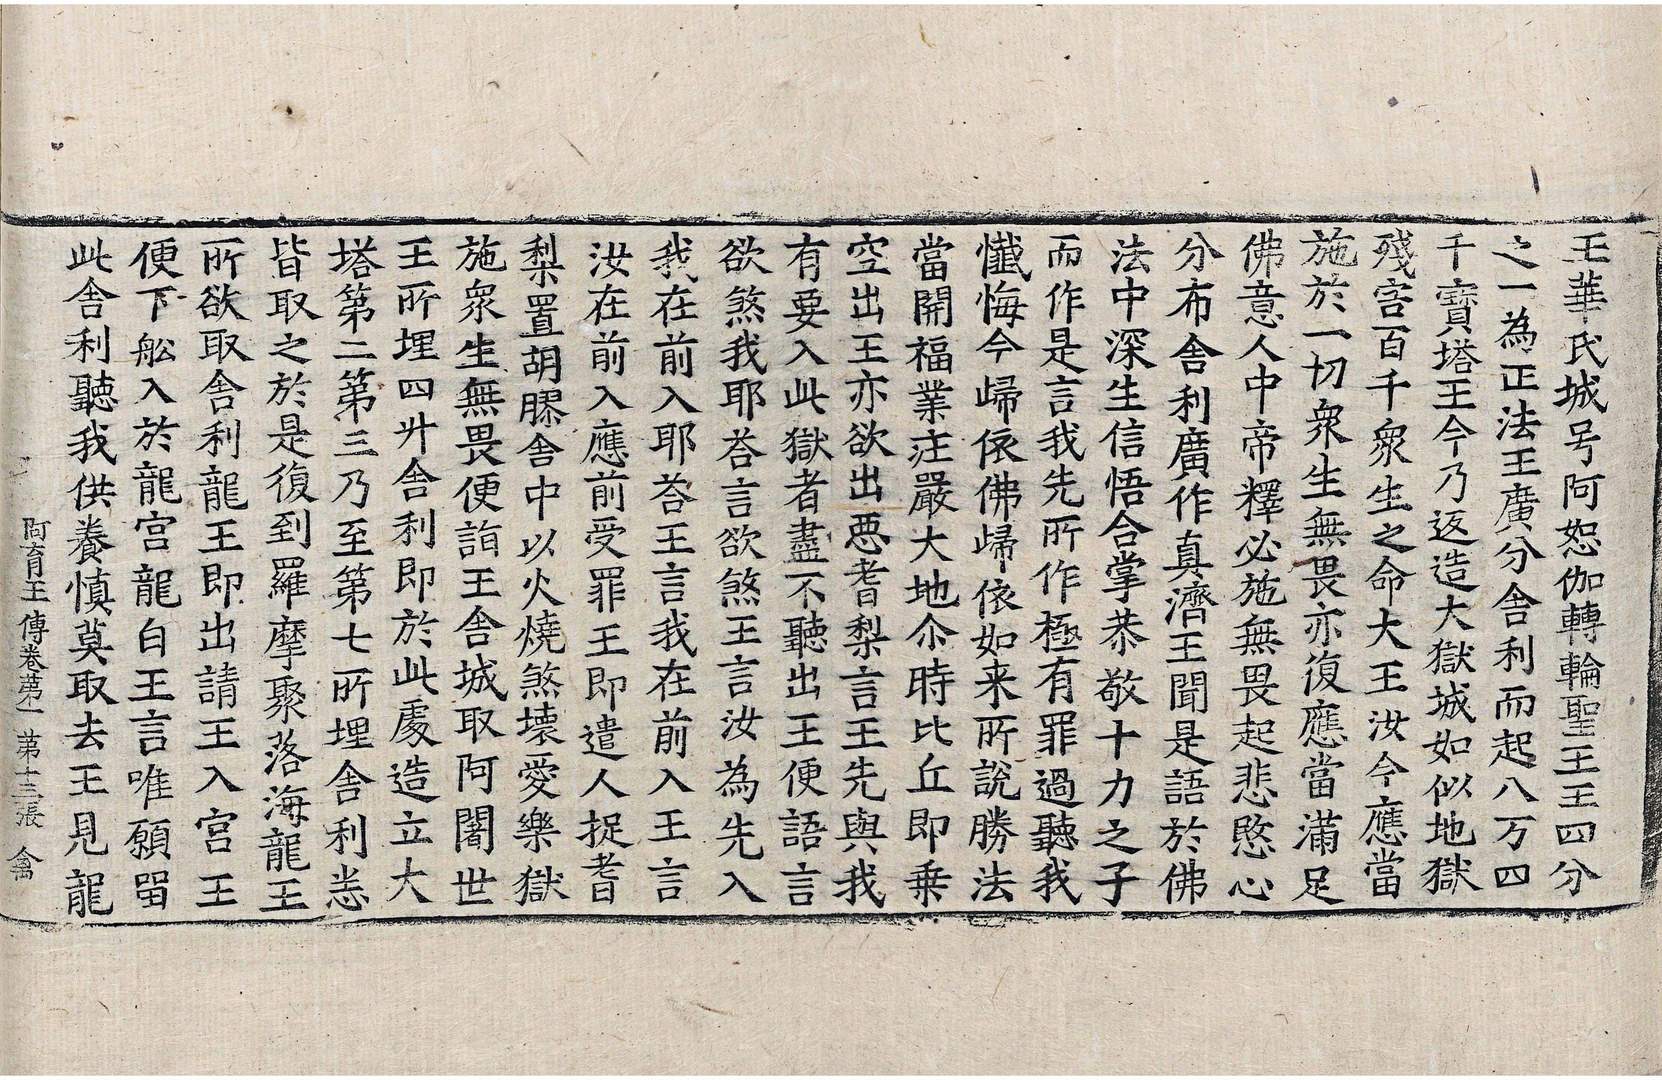 王華氏城号阿恕伽轉輪聖王王四分
之一為正法王廣分舍利而起八万四
千寶塔王今乃返造大獄城如似地獄
殘害百千衆生之命大王汝今應當
施於一切衆生無畏亦復應當滿足
佛意人中帝釋必施無畏起悲愍心
分布舍利廣作真濟王聞是語於佛
法中深生信悟合掌恭敬十力之子
而作是言我先所作極有罪過聽我
懺悔今歸依佛歸依如来所說勝法
當開福業莊嚴大地尒時比丘即乗
空出王亦欲出悪耆梨言王先與我
有要入此獄者盡不聽出王便語言
欲煞我耶荅言欲煞王言汝為先入
我在前入耶荅王言我在前入王言
汝在前入應前受罪王即遣人捉耆
梨置胡膠舍中以火燒煞壊愛樂獄
施衆生無畏便詣王舍城取阿闍世
王所埋四升舍利即於此處造立大
塔第二第三乃至第七所埋舍利悉
皆取之於是復到羅摩聚落海龍王
所欲取舍利龍王即出請王入宮王
便下舩入於龍宮龍白王言唯願留
此舍利聽我供養慎莫取去王見龍
阿育王傳卷第一 第十三張 禽